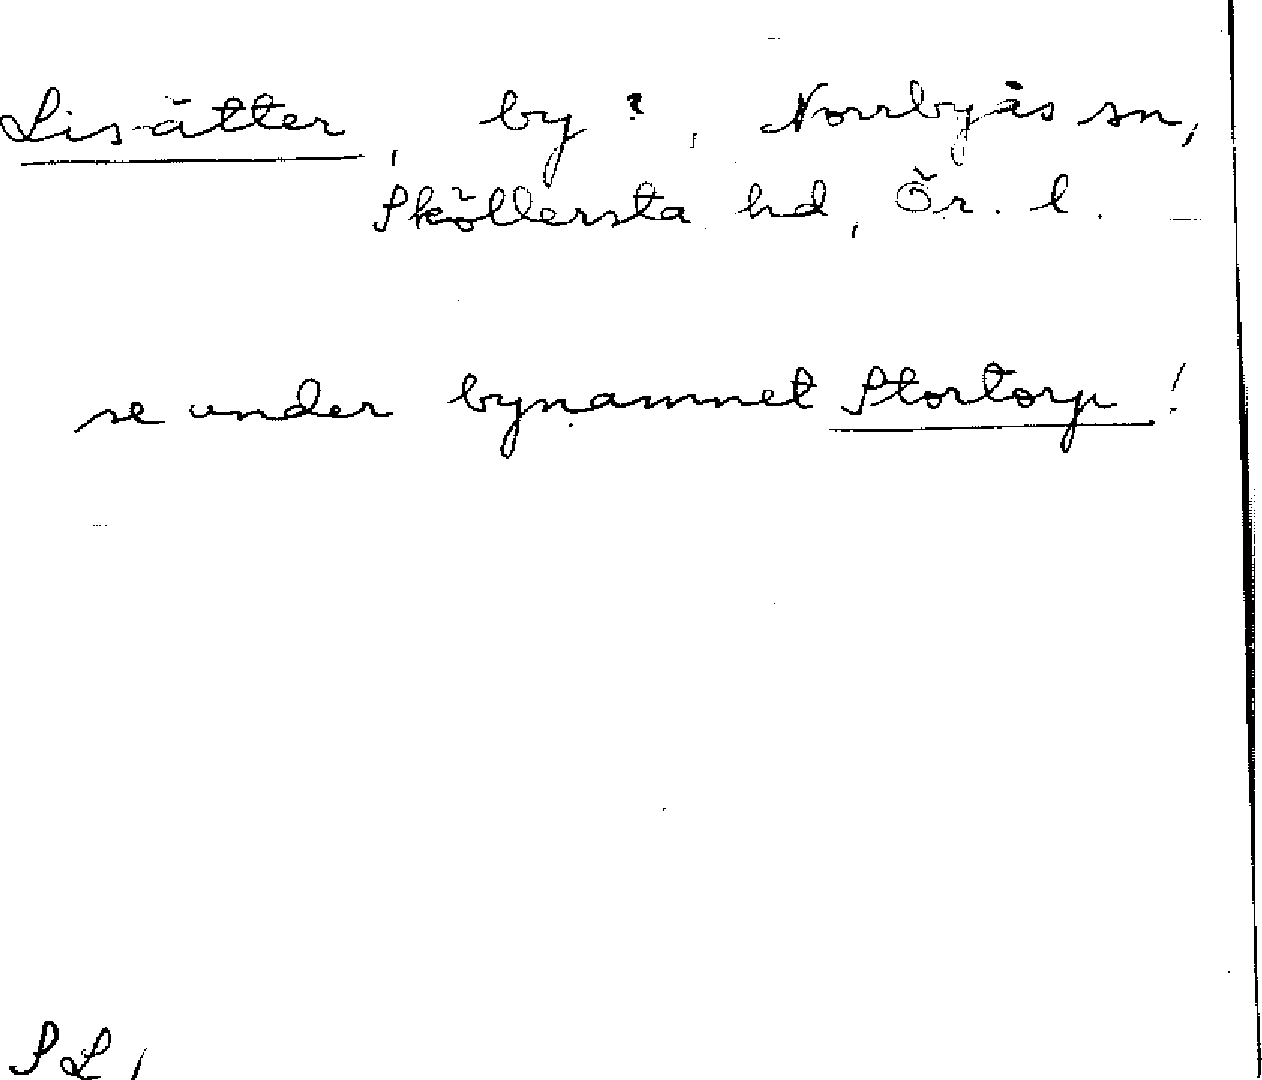 Lisätter, by?, Norrbyås sn,
Sköllersta hd, Ör. l.
se under bynamnet Stortorp!
SL,